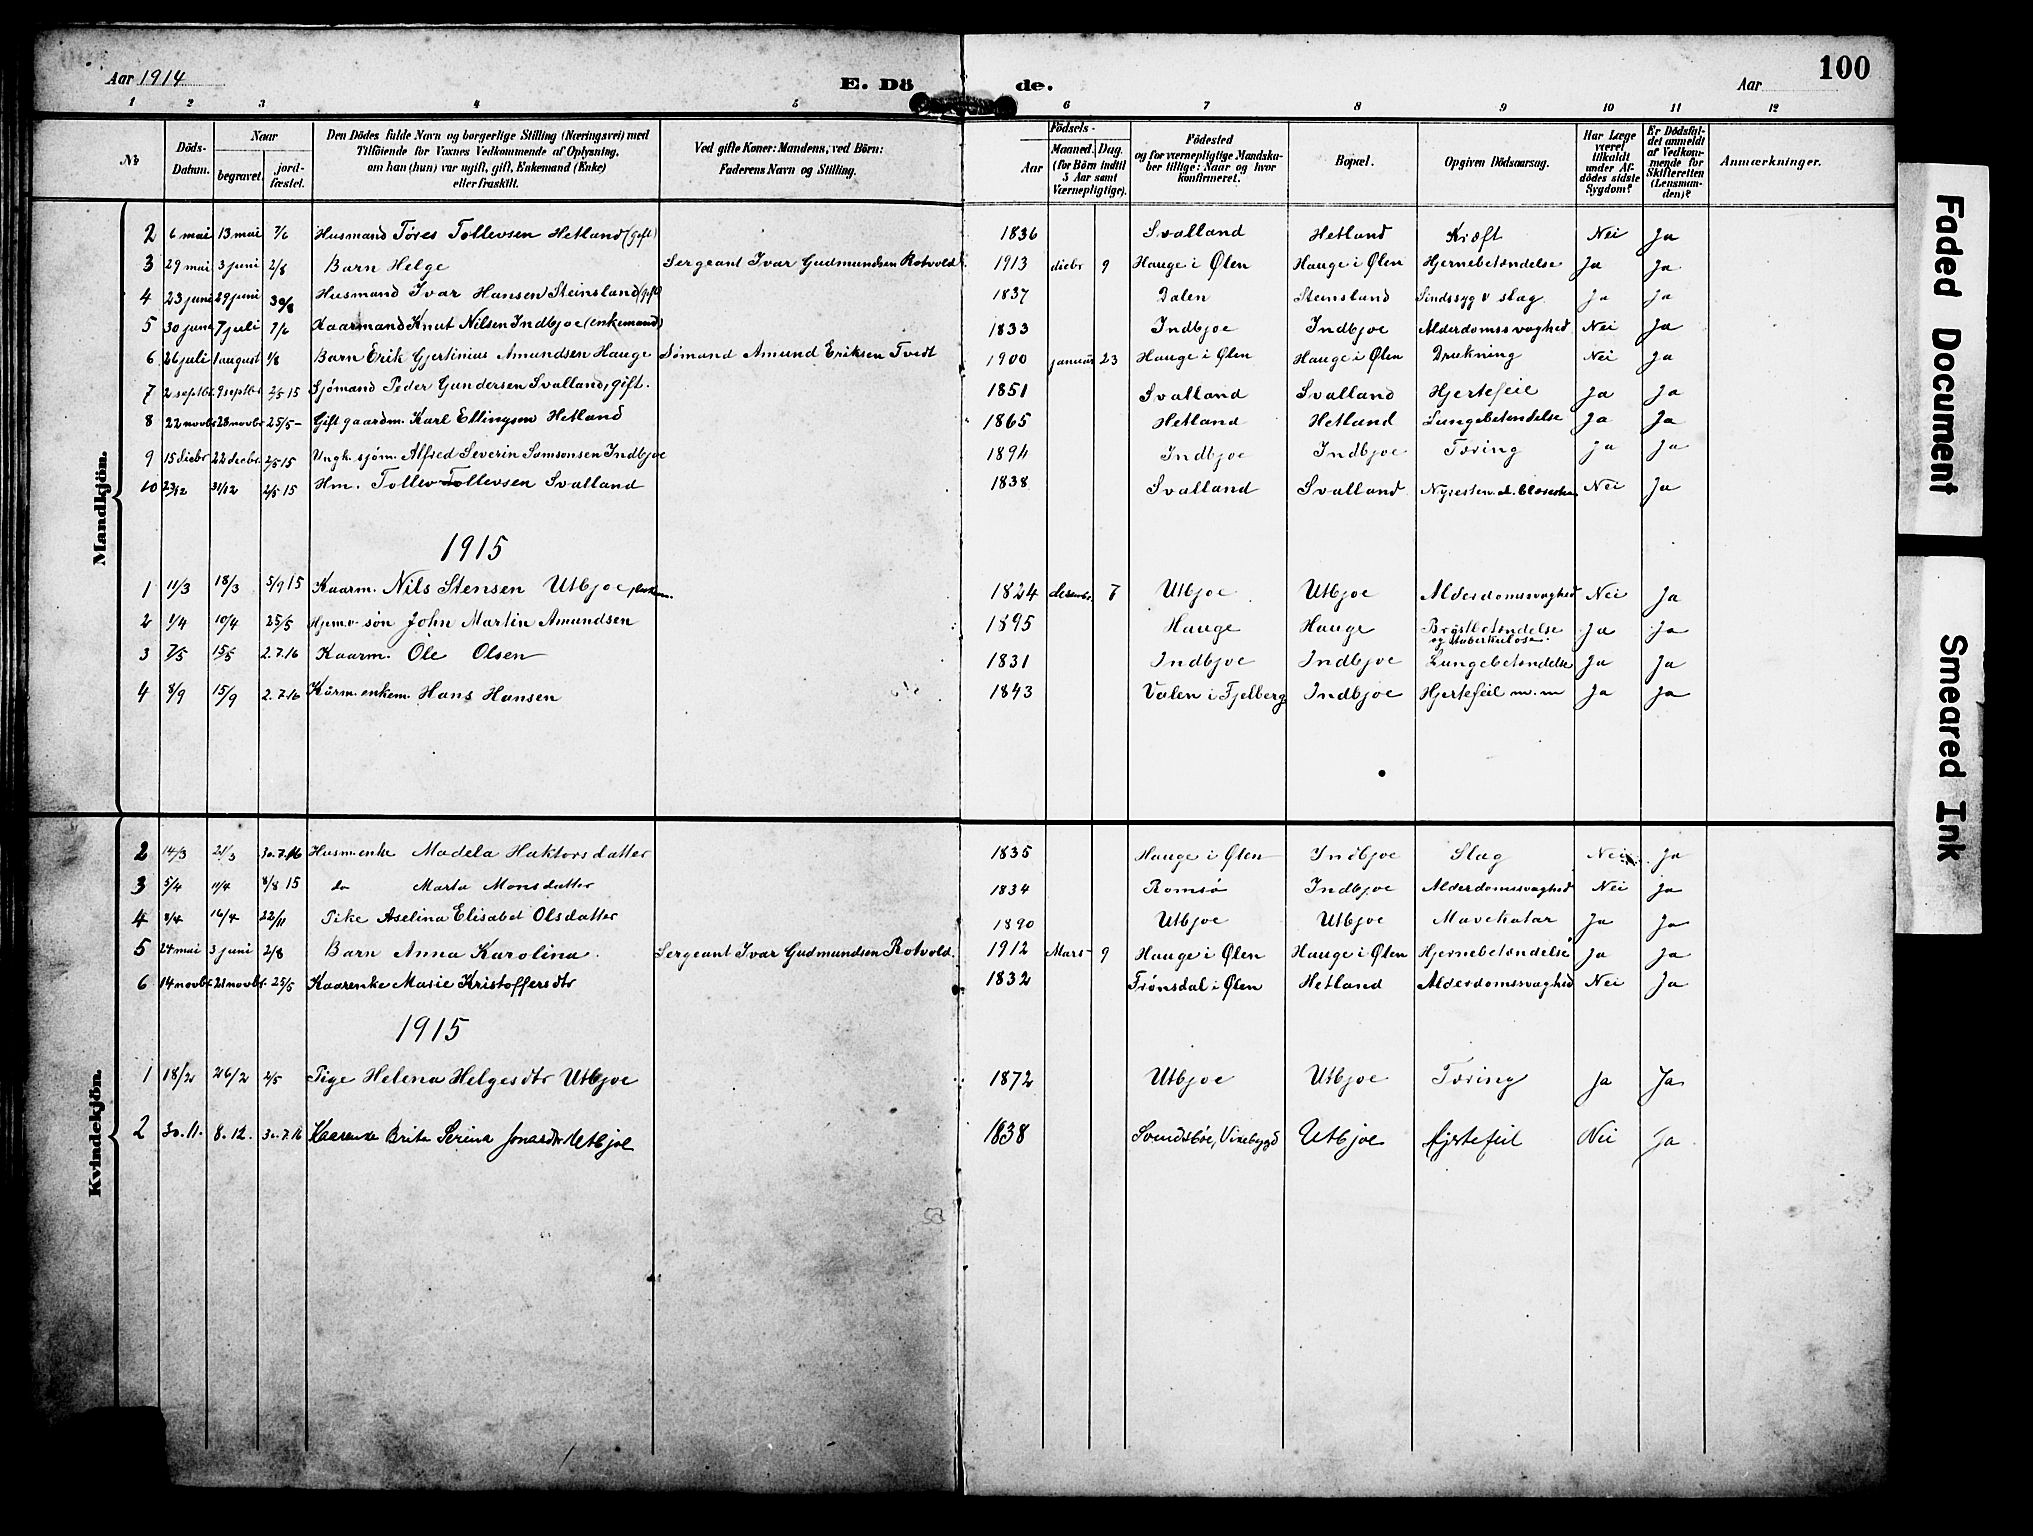 Aar 1914
E. Döde.
Aar
100
1 2 3 4 5 6 7 8 9 10 11 12
No
Döds-Datum.
Naar
begravet.
jord-fæstet.
Den Dödes fulde Navn og borgerlige Stilling (Næringsvei) med
Tilföiende for Voxnes Vedkommende af Oplysning,
om han (hun) var ugift, gift, Enkemand (Enke)
eller fraskilt.
Ved gifte Koner: Mandens, ved Börn:
Faderens Navn og Stilling.
Födsels-
Aar
Maaned. Dag.
(for Börn indtil
5 Aar samt
Værnepligtige).
Födested
og for værnepligtige Mandska-
ber tillige: Naar og hvor
konfirmeret.
Bopæl.
Opgiven Dödsaarsag.
Har Læge
været
tilkaldt
under Af-
dödes sidste
Sygdom?
Er Dödsfal-
det anmeldt
af Vedkom-
mende for
Skifteretten
(Lensman-
den)?
Anmærkninger.
Mandkjön.
2 6 mai 13 mai 7/6 Husmand Tøres Tollevsen Hetland (gift) 1836 Svalland Hetland Kræft Nei Ja
3 29 mai 3 juni 2/8 Barn Helge Sergeant Ivar Gudmundsen Rotvold 1913 diebr 9 Hauge i Ølen Hauge i Ølen Hjernebetændelse Ja Ja
4 23 juni 29 juni 30/8 Husmand Ivar Hansen Steinsland (gift) 1837 Dalen Steinsland Sindssyg v slag Ja Ja
5 30 juni 7 juli 7/6 Kaarmand Knut Nilsen Indbjoe (enkemand) 1833 Indbjoe Indbjoe Alderdomssvaghed Nei Ja
6 26 juli 1 august 1/8 Barn Erik Gjertinius Amundsen Hauge Sømand Amund Eriksen Tvedt 1900 januar 23 Hauge i Ølen Hauge i Ølen Drukning Nei Ja
7 2 septbr. 9 septbr 2/5 15 Sjømand Peder Gundersen Svalland, gift. 1851 Svalland Svalland Hjertefeil Ja Ja
8 22 novbr 28 novbr 25/5 - Gift gaardm. Karl Ellingsen Hetland 1865 Hetland Hetland Lungebetændelse Ja Ja
9 15 diebr 22 diebr. 2/5 15 Ungk. sjøm. Alfred Severin Samsonsen Indbjoe 1894 Indbjoe Indbjoe Tæring Ja Ja
10 23/12 31/12 2/5 15 Hm. Tollev Tollevsen Svalland 1838 Svalland Svalland Nyresten Nei Ja
1915
1 11/3 18/3 5/9 15 Kaarm. Nils Stensen Utbjoe, enkem. 1824 desembr. 7 Utbjoe Utbjoe Alderdomssvaghed Nei Ja
2 1/4 10/4 25/5 søn John Martin Amundsen 1895 Hauge Hauge Brystbetændelse og tuberkulose. Ja Ja
3 7/5 15/5 2.7.16 Kaarm. Ole Olsen 1831 Indbjoe Indbjoe Lungebetændelse Ja Ja
4 8/9 15/9 2.7.16 Kårm. enkem. Hans Hansen 1843 Valen i Fjelberg Indbjoe Hjertefeil m.m Ja Ja
Kvindekjön.
2 14/3 21/3 30.7.16 Husm. enke Madela Haktorsdatter 1835 Hauge i Ølen Indbjoe Slag Nei Ja
3 5/4 11/4 8/8 15 do Marta Monsdatter 1834 Romsø Indbjoe Alderdomssvaghed Nei Ja
4 8/4 16/4 22/11 Pike Aselina Elisabet Olsdatter 1890 Utbjoe Utbjoe Mavekatar Ja Ja
5 24 mai 3 juni 2/8 Barn Anna Karolina. Sergeant Ivar Gudmundsen Rotvold. 1912 Mars 9 Hauge i Ølen Hauge i Ølen Hjernebetændelse Ja Ja
6 14 novbr 21 novbr. 25/5 Kaarenke Marie Kristoffersdtr 1832 Trønsdal i Ølen Hetland Alderdomssvaghed Nei Ja
1915
1 18/2 26/2 2/5 Pige Helena Helgesdtr Utbjoe 1872 Utbjoe Utbjoe Tæring Ja Ja
2 30.11. 8.12. 30.7.16 Kaarenke Brita Serina Jonasdtr Utbjoe 1838 Svendsbøe, Vikebygd Utbjoe Hjertefeil Nei Ja
Faded Document
Smeared Ink